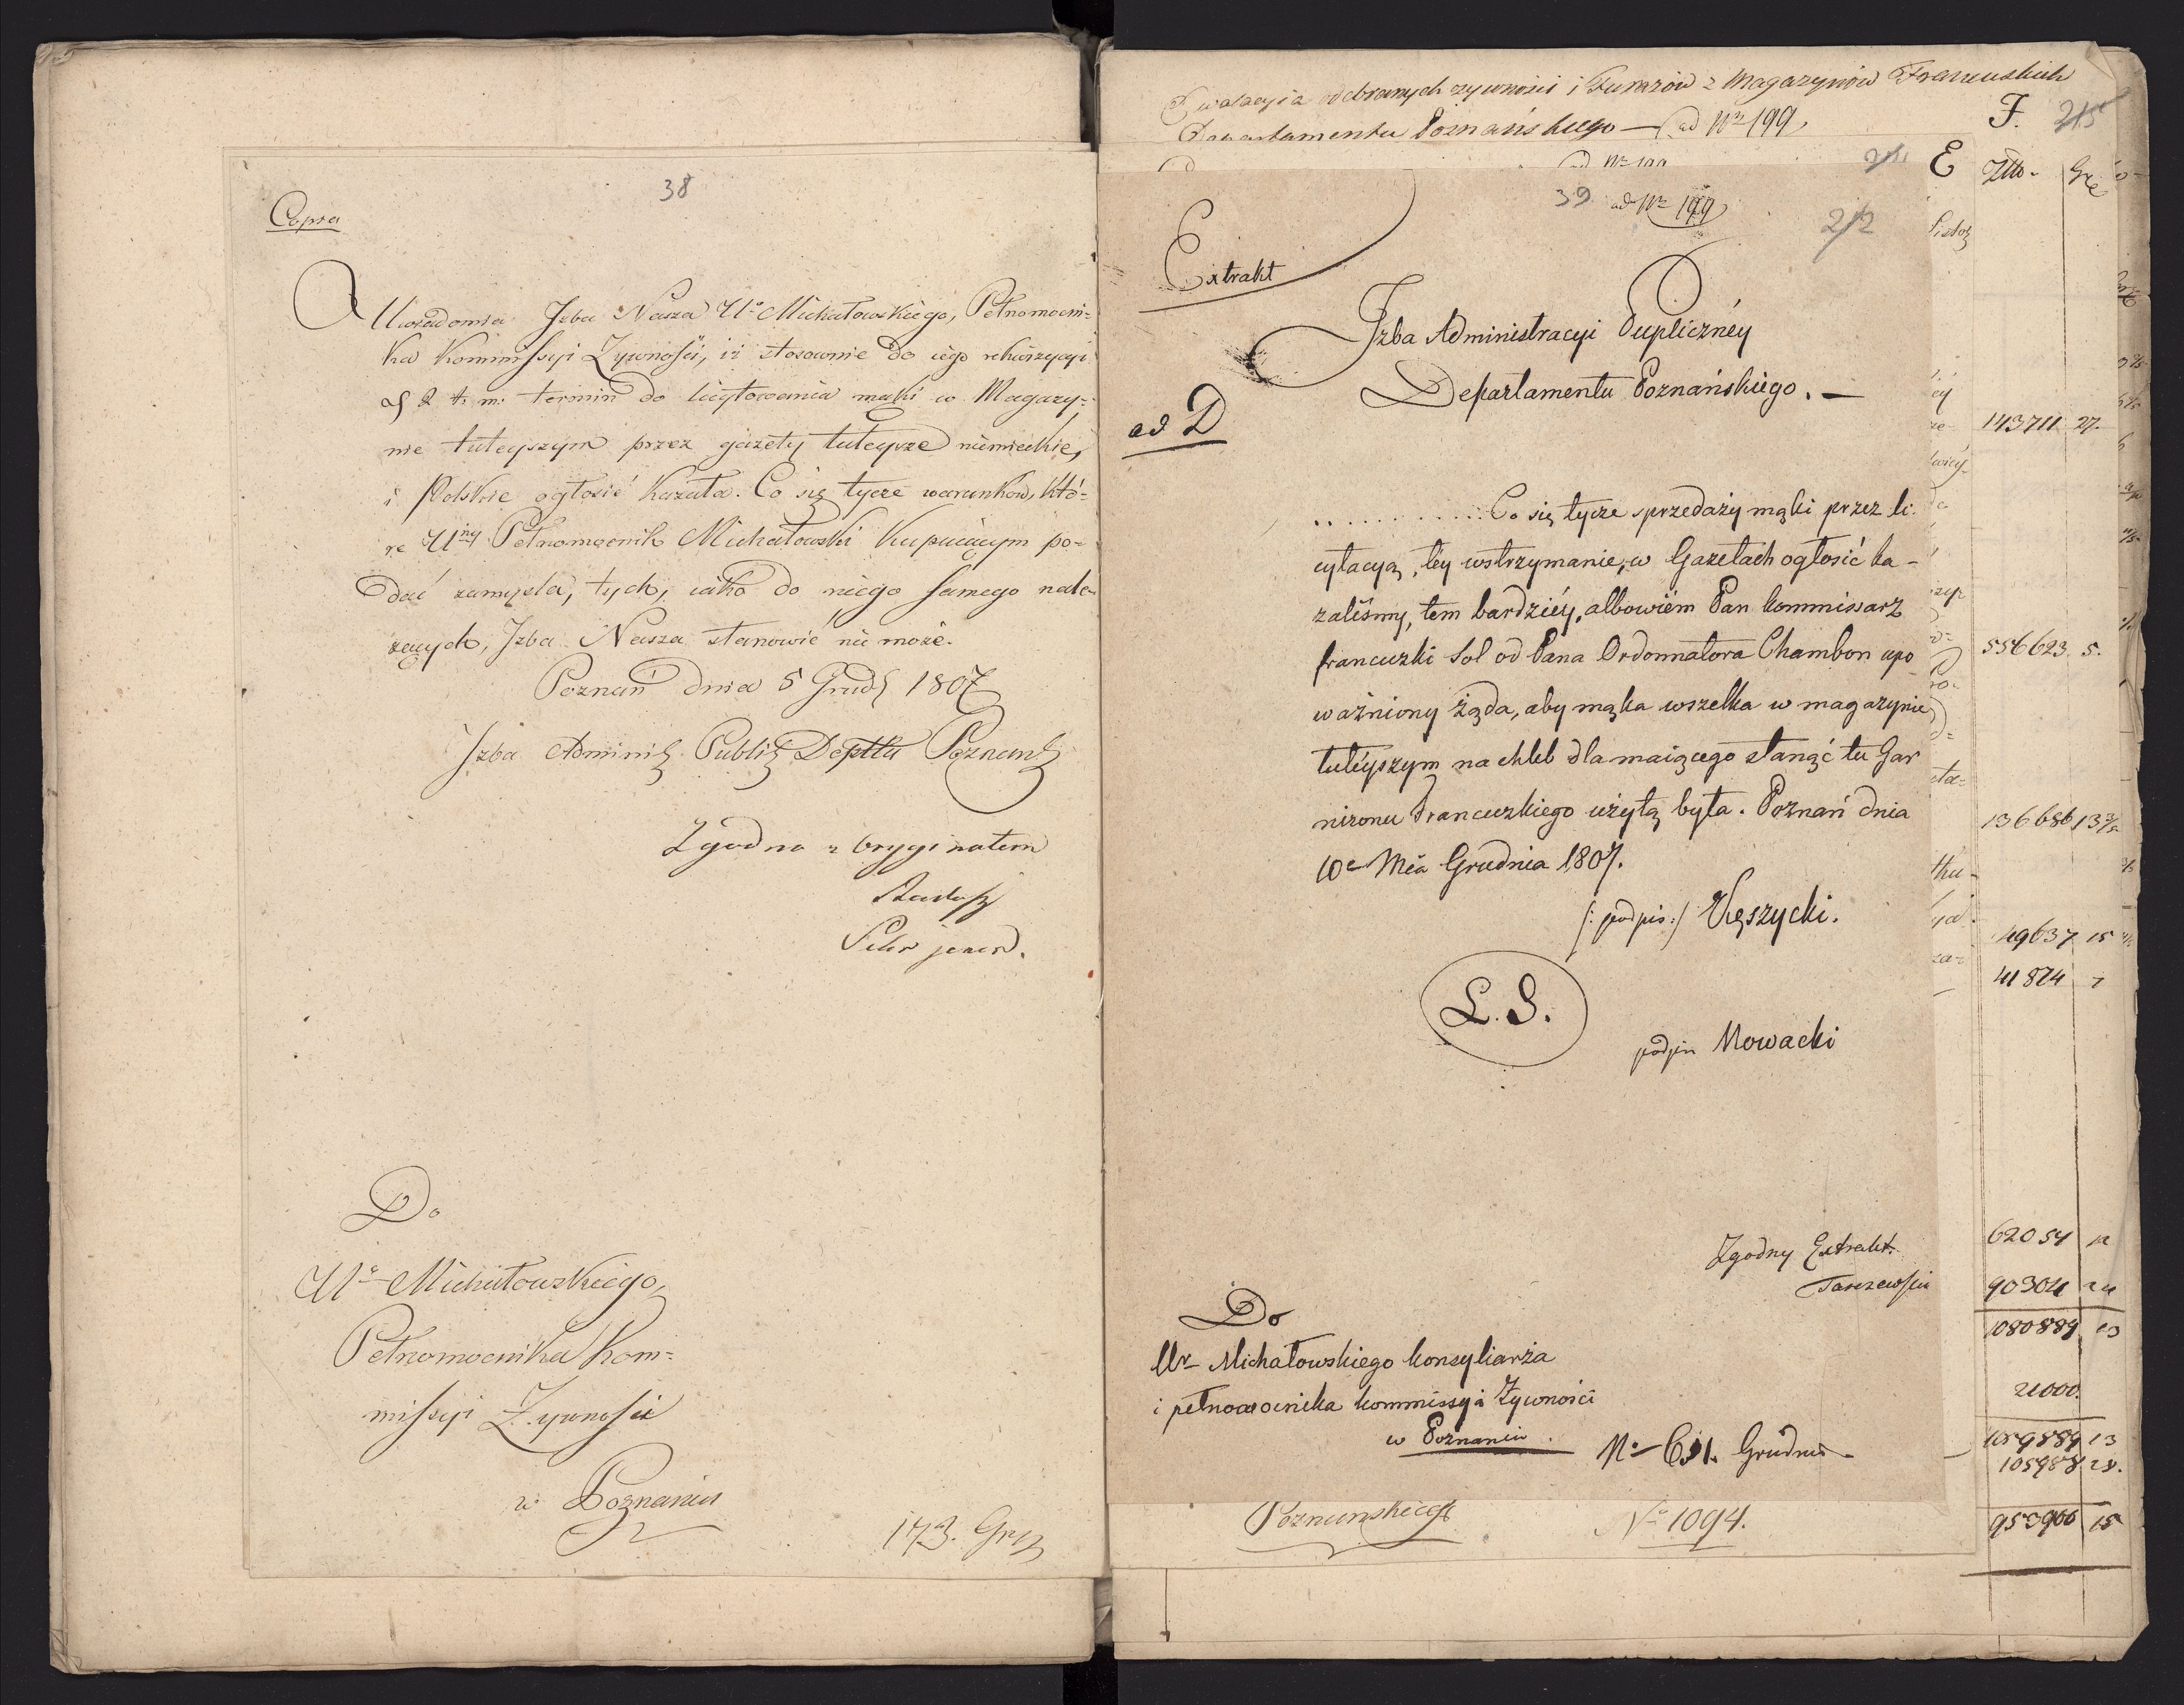 38
Copia
Uwiadomia Izba Nasza Uo Michałowskiego, Pełnomocni=
ka Kommissyi Żywności, iż stosownie do iego rekwizycyi
2 t. m. termin do licytowania mąki w Magazy=
nie tuteyszym przez gazety tuteysze niemieckie,
i Polskie ogłosić kazała. Co się tycze warunków, któ=
re Uny Pełnomocnik Michałowski Kupuiącym po=
dać zamyśla, tych, iako do niego samego nale=
żących, Izba Nasza stanowić nie może.
Poznań dnia 5 Grud 1807
Izba Adminis Public Depttu Poznans
Zgodno z oryginałem
Sekr jener.
Do
Uo Michałowskiego,
Pełnomocnika Kom=
missyi Żywności
w Poznaniu
173. Gr
odebranych żywności i Furażów z Magazynów Francuskich
Departamentu Poznańskiego — ad Nro 199
F. 215
E
Złlo. Gr
39 ad Nro 199
212
Extrakt
Izba Administracyi Pupliczney
Departamentu Poznańskiego. —
ad D
............ Co się tycze sprzedaży mąki przez li:
cytacyą, tey wstrzymanie, w Gazetach ogłosić ka-
zaliśmy, tem bardziéy, albowiém Pan Kommissarz
francuzki Sol od Pana Ordonnatora Chambon upo
ważniony żąda, aby mąka wszelka w magazynie
tuteyszym na chleb dla maiącego stanąć tu Gar
nizonu Francuzkiego użytą była. Poznań dnia
10e Mca Grudnia 1807.
/: podpis :/ Kęszycki.
L. S.
podpis Nowacki
Zgodny Extrakt.
Do
Ur Michałowskiego konsyliarza
i pełnomocnika kommissyi Żywności
w Poznaniu.
No 631. Grudnia
Poznanskiego
No 1094.
143711 27.
556623 5.
136686 13
49637 15
41824 7
62054 12
90304 24
1080889 13
21000.
1059889 13
105988 28.
953900 15